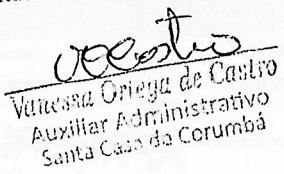 Vanessa Ortega de Castro
Auxiliar Administrativo
Santa Casa de Corumbá